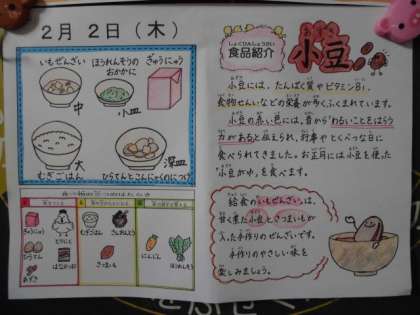 2月 2日(木)
いもぜんざい
ほうれんそうの
おかかに
ぎゅうにゅう
中
小皿
大
むぎごはん
深皿
ひらてんとこんにゃくのにつけ
ぎゅうにゅう
とりにく
ひらてん
はなかつお
あずき
むぎごはん
さんおんとう
さつまいも
にんじん
ほうれんそう
しょくひんしょうかい
食品紹介
あずき
小豆
小豆には、たんぱく質やビタミンB1、
食物せんいなどの栄養が多くふくまれています。
小豆の赤い色には、昔から「わるいことをはらう
力がある」と伝えられ、行事やとくべつな日に
食べられてきました。お正月には小豆を使った
「小豆がゆ」を食べます。
給食のいもぜんざいは、
甘く煮た小豆とさつまいもが
入った手作りのぜんざいです。
手作りのやさしい味を
楽しみましょう。